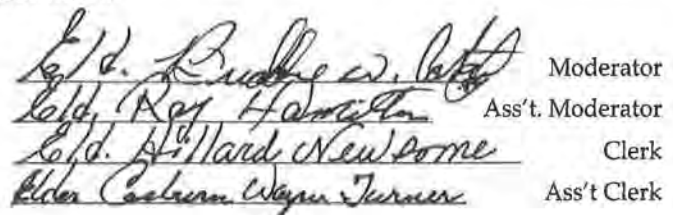 Eld. W. Moderator
Eld. Ray Hamilton Ass't. Moderator
Eld. Hillard Newsome Clerk
Elder Wayne Turner Ass't Clerk